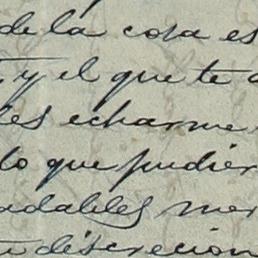 de la cosa es
, y el que te a
les echarme
lo que pudier
adables mer
tu discrecion